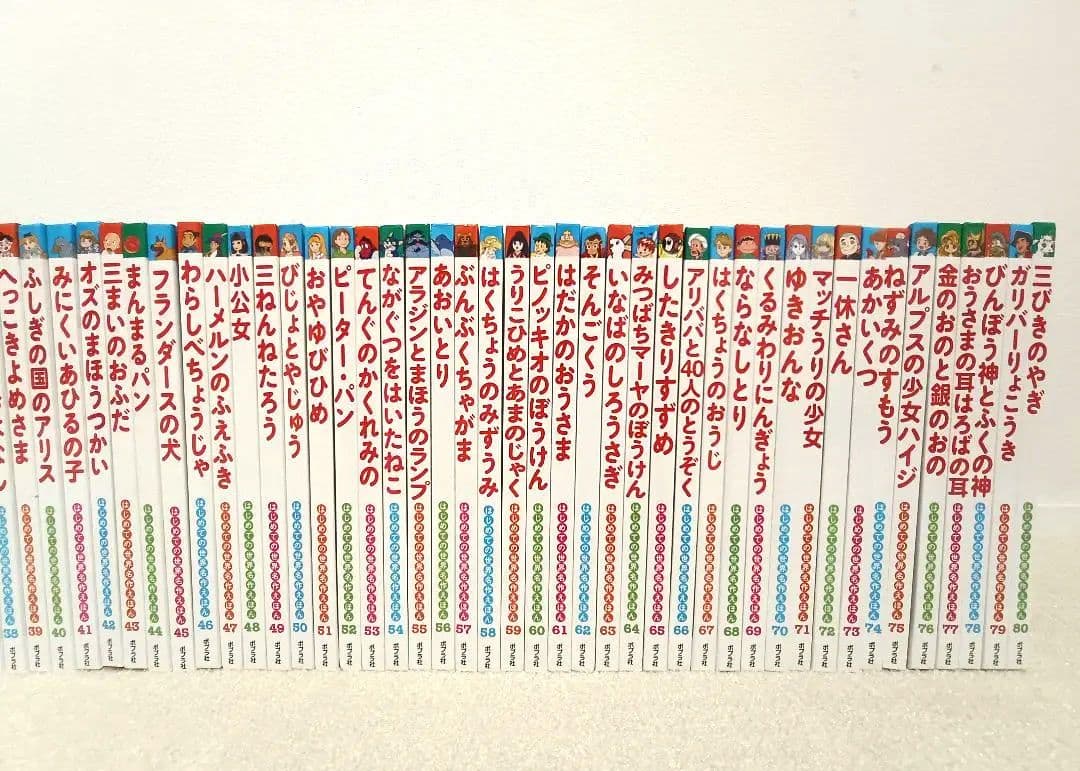 はじめての世界名作えほん 38
へっこきよめさま はじめての世界名作えほん 39 ポプラ社
ふしぎの国のアリス はじめての世界名作えほん 40 ポプラ社
みにくいあひるの子 はじめての世界名作えほん 41 ポプラ社
オズのまほうつかい はじめての世界名作えほん 42 ポプラ社
三まいのおふだ はじめての世界名作えほん 43 ポプラ社
まんまるパン はじめての世界名作えほん 44 ポプラ社
フランダースの犬 はじめての世界名作えほん 45 ポプラ社
わらしべちょうじゃ はじめての世界名作えほん 46 ポプラ社
ハーメルンのふえふき はじめての世界名作えほん 47 ポプラ社
小公女 はじめての世界名作えほん 48 ポプラ社
三ねんねたろう はじめての世界名作えほん 49 ポプラ社
びじょとやじゅう はじめての世界名作えほん 50 ポプラ社
おやゆびひめ はじめての世界名作えほん 51 ポプラ社
ピーター・パン はじめての世界名作えほん 52 ポプラ社
てんぐのかくれみの はじめての世界名作えほん 53 ポプラ社
ながぐつをはいたねこ はじめての世界名作えほん 54 ポプラ社
アラジンとまほうのランプ はじめての世界名作えほん 55 ポプラ社
あおいとり はじめての世界名作えほん 56 ポプラ社
ぶんぶくちゃがま はじめての世界名作えほん 57 ポプラ社
はくちょうのみずうみ はじめての世界名作えほん 58 ポプラ社
うりこひめとあまのじゃく はじめての世界名作えほん 59 ポプラ社
ピノッキオのぼうけん はじめての世界名作えほん 60 ポプラ社
はだかのおうさま はじめての世界名作えほん 61 ポプラ社
そんごくう はじめての世界名作えほん 62 ポプラ社
いなばのしろうさぎ はじめての世界名作えほん 63 ポプラ社
みつばちマーヤのぼうけん はじめての世界名作えほん 64 ポプラ社
したきりすずめ はじめての世界名作えほん 65 ポプラ社
アリババと40人のとうぞく はじめての世界名作えほん 66 ポプラ社
はくちょうのおうじ はじめての世界名作えほん 67 ポプラ社
ならなしとり はじめての世界名作えほん 68 ポプラ社
くるみわりにんぎょう はじめての世界名作えほん 69 ポプラ社
ゆきおんな はじめての世界名作えほん 70 ポプラ社
マッチうりの少女 はじめての世界名作えほん 71 ポプラ社
一休さん はじめての世界名作えほん 72 ポプラ社
あかいくつ はじめての世界名作えほん 73 ポプラ社
ねずみのすもう はじめての世界名作えほん 74 ポプラ社
アルプスの少女ハイジ はじめての世界名作えほん 75 ポプラ社
金のおのと銀のおの はじめての世界名作えほん 76 ポプラ社
おうさまの耳はろばの耳 はじめての世界名作えほん 77 ポプラ社
びんぼう神とふくの神 はじめての世界名作えほん 78 ポプラ社
ガリバーりょこうき はじめての世界名作えほん 79 ポプラ社
三びきのやぎ はじめての世界名作えほん 80 ポプラ社